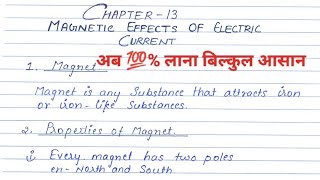 CHAPTER-13
MAGNETIC EFFECTS OF ELECTRIC
CURRENT
1. Magnet
अब 💯% लाना बिल्कुल आसान
Magnet is any Substance that attracts iron
or iron-like Substances.
2. Properties of Magnet.
i) Every magnet has two poles
en- North and South